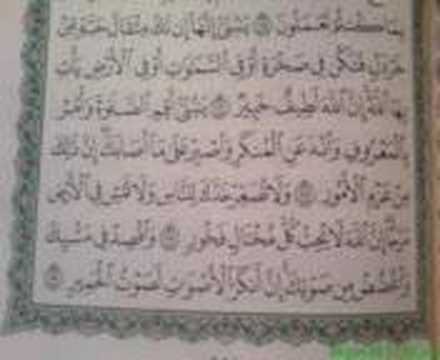 بِمَا كُنتُمْ تَعْمَلُونَ ۝ يَٰبُنَىَّ إِنَّهَآ إِن تَكُ مِثْقَالَ حَبَّةٍ مِّنْ
خَرْدَلٍ فَتَكُن فِى صَخْرَةٍ أَوْ فِى ٱلسَّمَٰوَٰتِ أَوْ فِى ٱلْأَرْضِ يَأْتِ
بِهَا ٱللَّهُ إِنَّ ٱللَّهَ لَطِيفٌ خَبِيرٌ ۝ يَٰبُنَىَّ أَقِمِ ٱلصَّلَوٰةَ وَأْمُرْ
بِٱلْمَعْرُوفِ وَٱنْهَ عَنِ ٱلْمُنكَرِ وَٱصْبِرْ عَلَىٰ مَآ أَصَابَكَ إِنَّ ذَٰلِكَ
مِنْ عَزْمِ ٱلْأُمُورِ ۝ وَلَا تُصَعِّرْ خَدَّكَ لِلنَّاسِ وَلَا تَمْشِ فِى ٱلْأَرْضِ
مَرَحًا إِنَّ ٱللَّهَ لَا يُحِبُّ كُلَّ مُخْتَالٍ فَخُورٍ ۝ وَٱقْصِدْ فِى مَشْيِكَ
وَٱغْضُضْ مِن صَوْتِكَ إِنَّ أَنكَرَ ٱلْأَصْوَٰتِ لَصَوْتُ ٱلْحَمِيرِ ۝